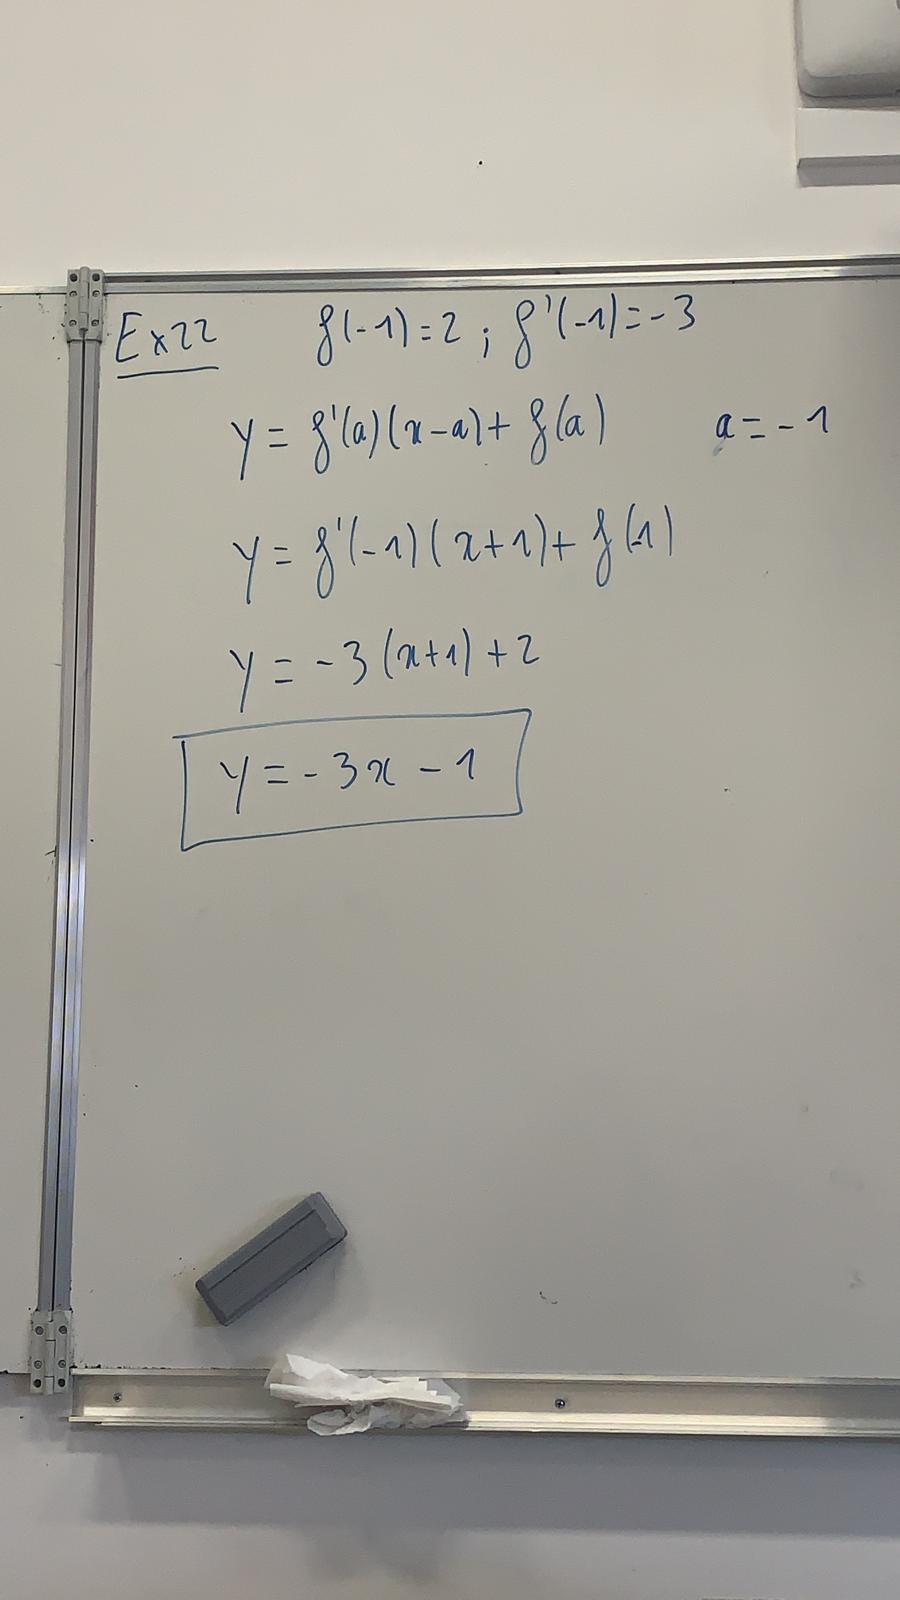 Ex22 f(-1)=2 ; f'(-1)=-3
y = f'(a)(x-a)+ f(a) a = -1
y = f'(-1)(x+1)+ f(-1)
y = -3(x+1)+2
y = -3x - 1